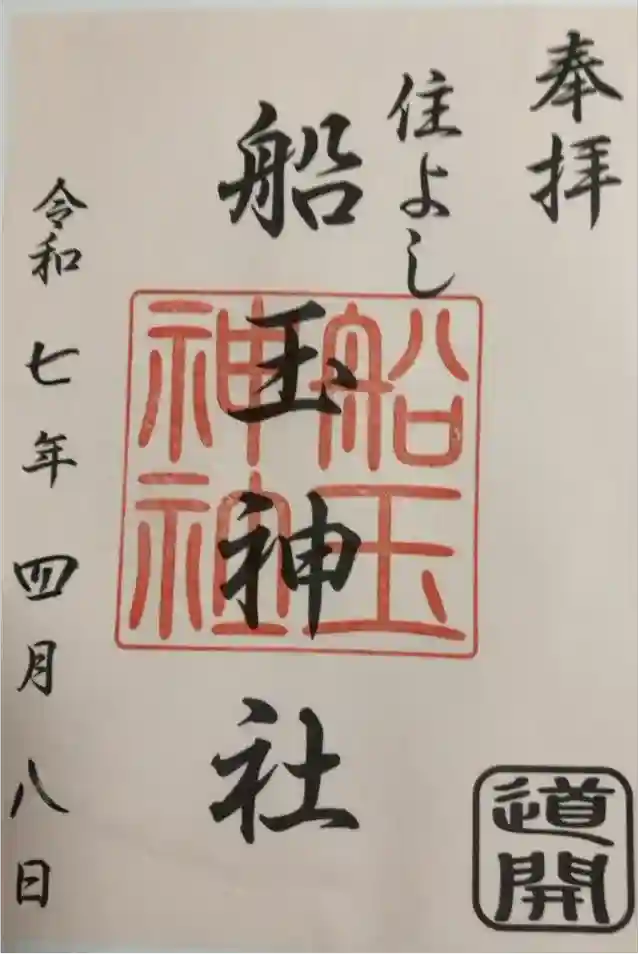 奉拝
住よし
船玉神社
船玉
神社
令和七年四月八日
道開